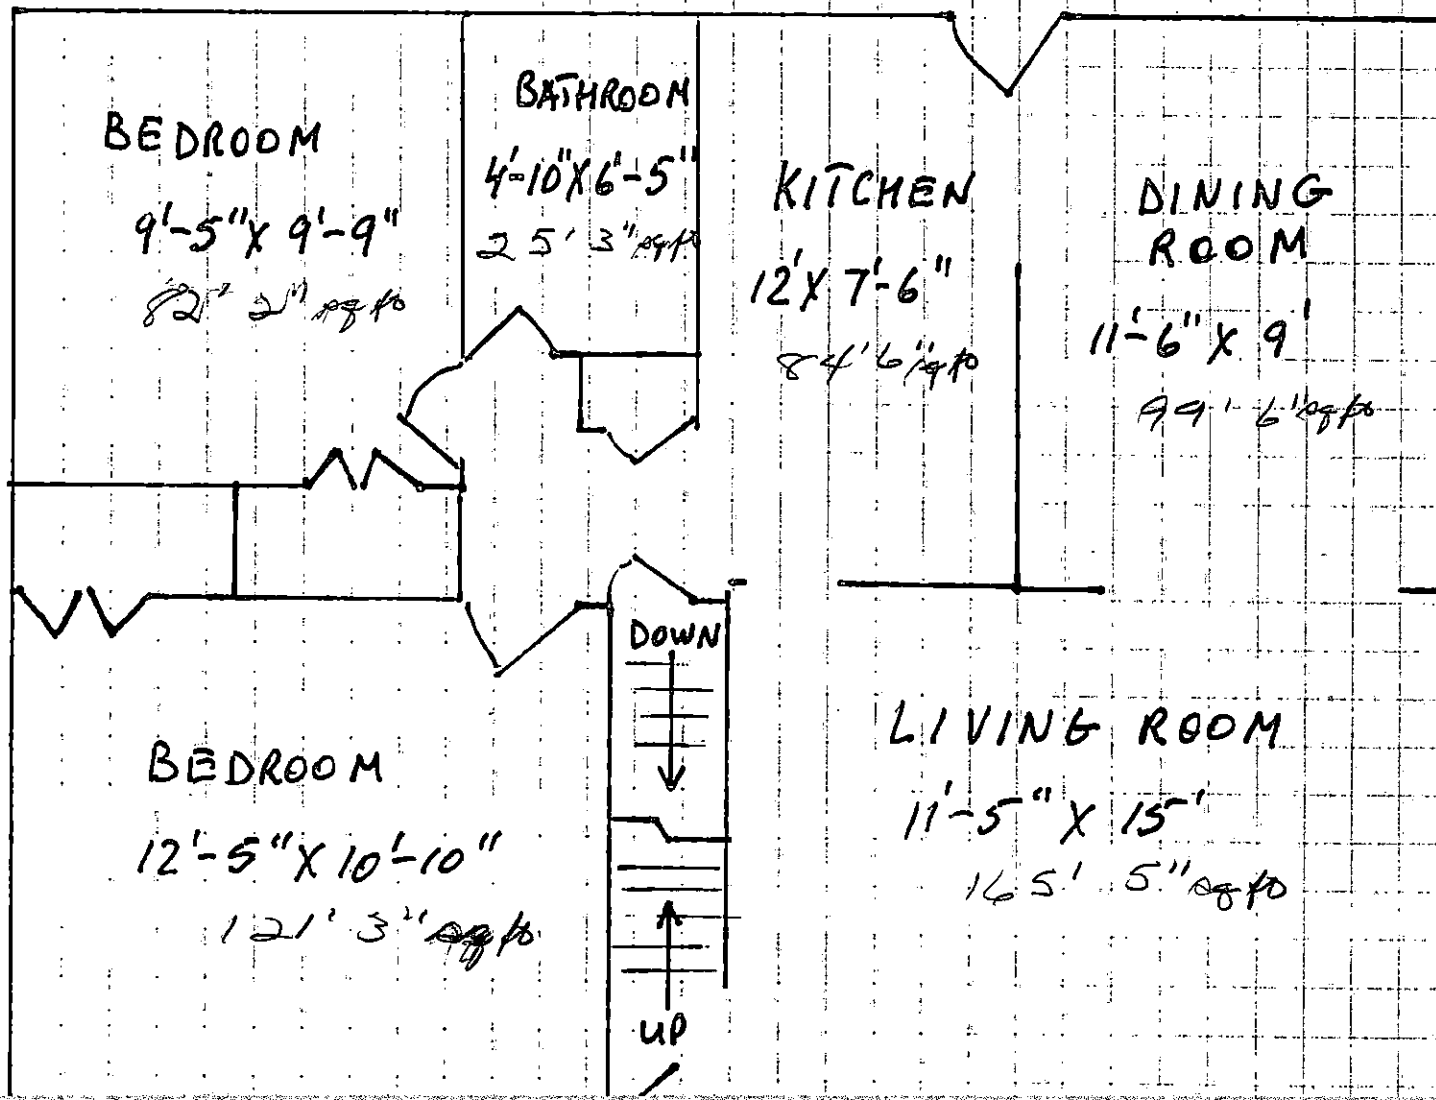 BEDROOM
9'-5" X 9'-9"
82' 2" sq ft
BATHROOM
4'-10" X 6'-5"
25' 3" sq ft
KITCHEN
12' X 7'-6"
84' 6" sq ft
DINING
ROOM
11'-6" X 9'
99' 6" sq ft
BEDROOM
12'-5" X 10'-10"
121' 3" sq ft
DOWN
UP
LIVING ROOM
11'-5" X 15'
165' 5" sq ft